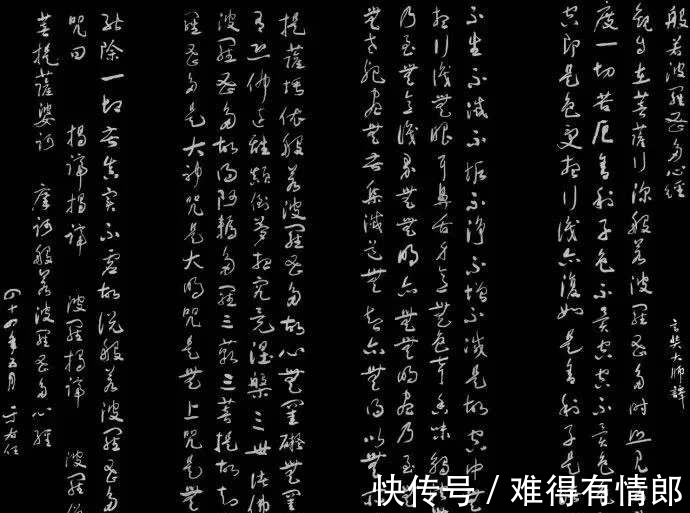 般若波羅蜜多心經 玄奘大師譯
觀自在菩薩行深般若波羅蜜多時照見
度一切苦厄舍利子色不異空空不異色
空即是色受想行識亦復如是舍利子是諸
不生不滅不垢不淨不增不減是故空中無
想行識無眼耳鼻舌身意無色聲香味觸
乃至無意識界無無明亦無無明盡乃至無
無老死盡無苦集滅道無智亦無得以無所
提薩埵依般若波羅蜜多故心無罣礙無罣
有恐怖遠離顛倒夢想究竟涅槃三世諸佛
波羅蜜多故得阿耨多羅三藐三菩提故知
羅蜜多是大神咒是大明咒是無上咒是無
能除一切苦真實不虛故說般若波羅蜜多
咒曰 揭諦揭諦 波羅揭諦 波羅僧
菩提薩婆訶 摩訶般若波羅蜜多心經
四十四年五月 于右任
快传号 / 难得有情郎